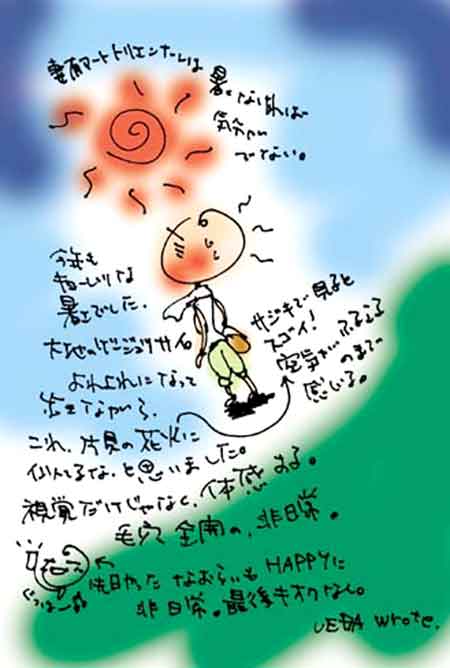 妻有アートトリエンナーレは
暑くなければ
気分が
でない。
今年も
暑さでした。
大地のゲージュツサイ。
よれよれになって
歩きながら、
サジキで見ると
スゴイ!
空気が ふるえる
のまで
感じる。
これ、片貝の花火に
似てるな、と思いました。
視覚だけじゃなく、体感する。
毛穴全開の、非日常。
なおらいも HAPPYに
非日常。最後キオクなし。
UEDA wrote.